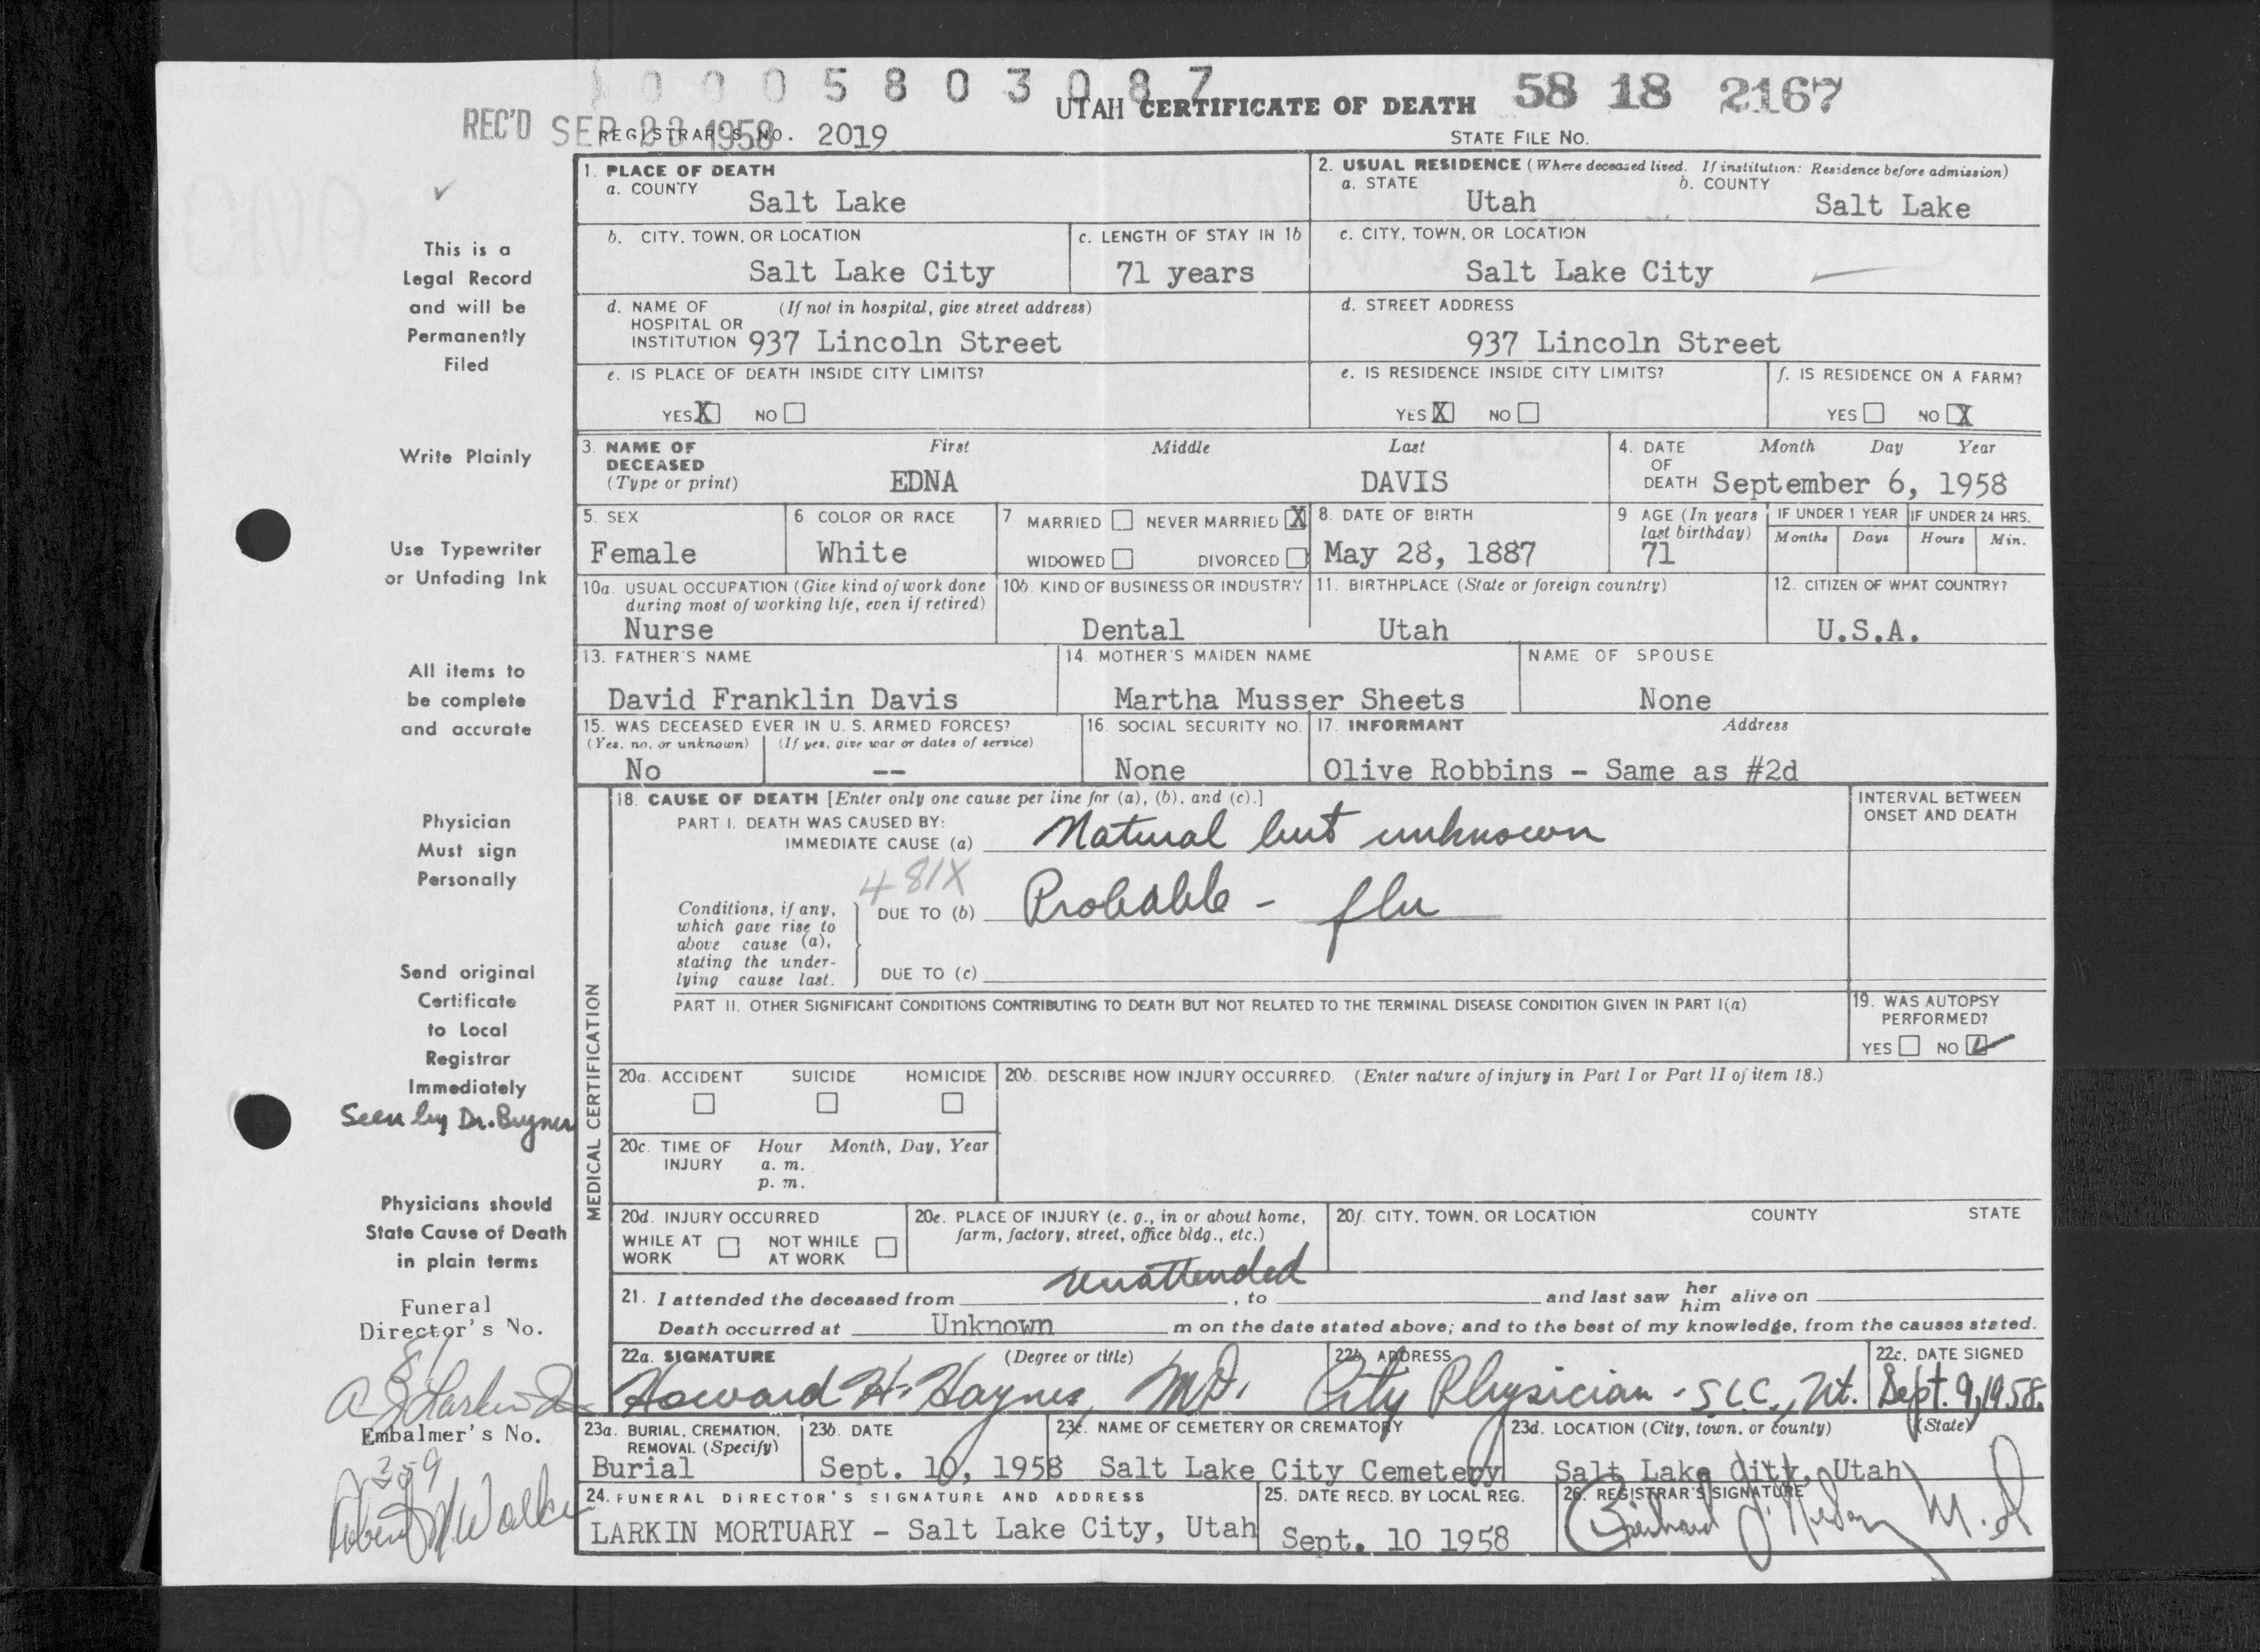 1 0 0 0 5 8 0 3 0 8 7
UTAH CERTIFICATE OF DEATH 58 18 2167
REC'D SEP 23 1958 REGISTRAR'S NO. 2019 STATE FILE NO.
1. PLACE OF DEATH
a. COUNTY Salt Lake
2. USUAL RESIDENCE (Where deceased lived. If institution: Residence before admission)
a. STATE Utah b. COUNTY Salt Lake
b. CITY, TOWN, OR LOCATION Salt Lake City
c. LENGTH OF STAY IN 1b 71 years
c. CITY, TOWN, OR LOCATION Salt Lake City
d. NAME OF HOSPITAL OR INSTITUTION (If not in hospital, give street address) 937 Lincoln Street
d. STREET ADDRESS 937 Lincoln Street
e. IS PLACE OF DEATH INSIDE CITY LIMITS?
YES X NO
e. IS RESIDENCE INSIDE CITY LIMITS?
YES X NO
f. IS RESIDENCE ON A FARM?
YES NO X
3. NAME OF DECEASED (Type or print)
First Middle Last
EDNA DAVIS
4. DATE OF DEATH Month Day Year
September 6, 1958
5. SEX
Female
6. COLOR OR RACE
White
7 MARRIED NEVER MARRIED X
WIDOWED DIVORCED
8. DATE OF BIRTH
May 28, 1887
9 AGE (In years last birthday)
71
IF UNDER 1 YEAR
Months Days
IF UNDER 24 HRS.
Hours Min.
10a. USUAL OCCUPATION (Give kind of work done during most of working life, even if retired)
Nurse
10b. KIND OF BUSINESS OR INDUSTRY
Dental
11. BIRTHPLACE (State or foreign country)
Utah
12. CITIZEN OF WHAT COUNTRY?
U.S.A.
13. FATHER'S NAME
David Franklin Davis
14. MOTHER'S MAIDEN NAME
Martha Musser Sheets
NAME OF SPOUSE
None
15. WAS DECEASED EVER IN U. S. ARMED FORCES?
(Yes, no, or unknown) (If yes, give war or dates of service)
No --
16. SOCIAL SECURITY NO.
None
17. INFORMANT Address
Olive Robbins - Same as #2d
MEDICAL CERTIFICATION
18. CAUSE OF DEATH [Enter only one cause per line for (a), (b), and (c).]
PART I. DEATH WAS CAUSED BY:
IMMEDIATE CAUSE (a) Natural but unknown
481X
Conditions, if any, which gave rise to above cause (a), stating the underlying cause last.
DUE TO (b) Probable - flu
DUE TO (c)
INTERVAL BETWEEN ONSET AND DEATH
PART II. OTHER SIGNIFICANT CONDITIONS CONTRIBUTING TO DEATH BUT NOT RELATED TO THE TERMINAL DISEASE CONDITION GIVEN IN PART I(a)
19. WAS AUTOPSY PERFORMED?
YES NO
20a. ACCIDENT SUICIDE HOMICIDE
20b. DESCRIBE HOW INJURY OCCURRED. (Enter nature of injury in Part I or Part II of item 18.)
20c. TIME OF INJURY Hour Month, Day, Year
a. m.
p. m.
20d. INJURY OCCURRED
WHILE AT WORK NOT WHILE AT WORK
20e. PLACE OF INJURY (e. g., in or about home, farm, factory, street, office bldg., etc.)
20f. CITY, TOWN, OR LOCATION COUNTY STATE
21. I attended the deceased from unattended, to and last saw her him alive on
Death occurred at Unknown m on the date stated above; and to the best of my knowledge, from the causes stated.
22a. SIGNATURE (Degree or title)
Howard H. Haynes, MD.
22b. ADDRESS
City Physician - S.L.C., Ut.
22c. DATE SIGNED
Sept. 9, 1958.
23a. BURIAL, CREMATION, REMOVAL (Specify)
Burial
23b. DATE
Sept. 10, 1958
23c. NAME OF CEMETERY OR CREMATORY
Salt Lake City Cemetery
23d. LOCATION (City, town, or county) (State)
Salt Lake City, Utah
24. FUNERAL DIRECTOR'S SIGNATURE AND ADDRESS
LARKIN MORTUARY - Salt Lake City, Utah
25. DATE RECD. BY LOCAL REG.
Sept. 10 1958
26. REGISTRAR'S SIGNATURE
M.D
This is a
Legal Record
and will be
Permanently
Filed
Write Plainly
Use Typewriter
or Unfading Ink
All items to
be complete
and accurate
Physician
Must sign
Personally
Send original
Certificate
to Local
Registrar
Immediately
Seen by Dr. Bryner
Physicians should
State Cause of Death
in plain terms
Funeral
Director's No.
Larkin
Embalmer's No.
359
Robert Walker